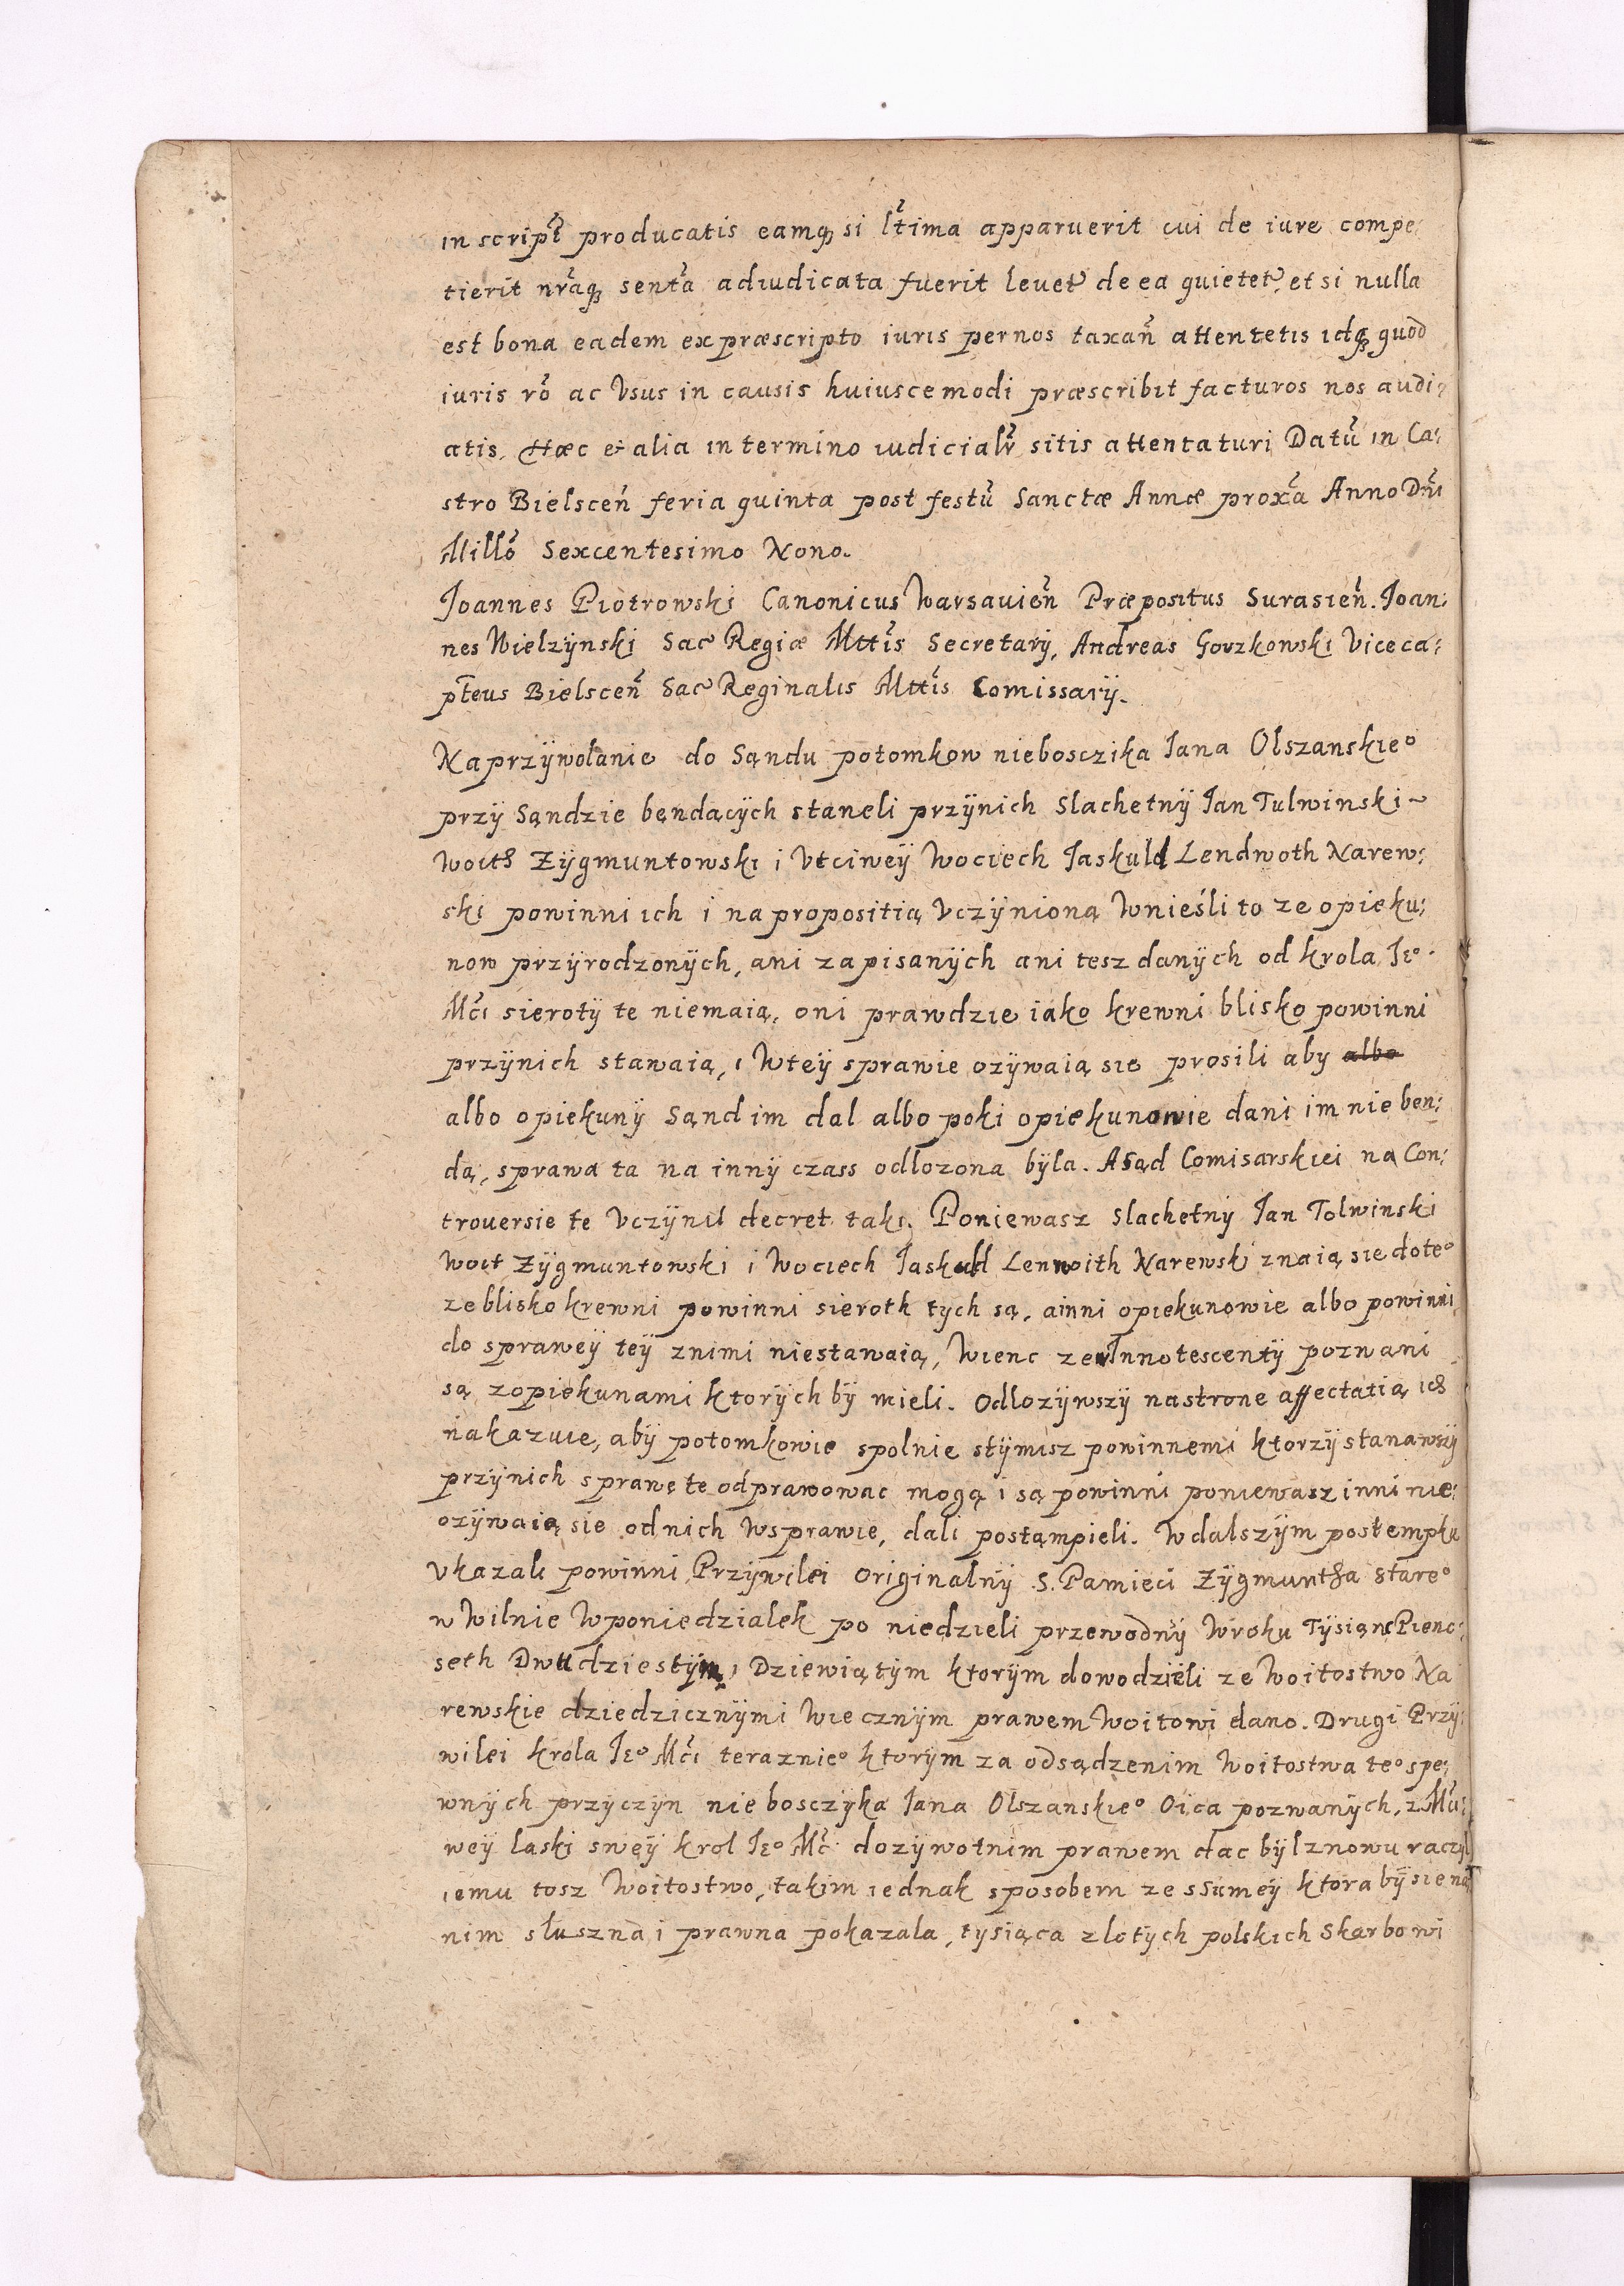 in script̃ producatis eamq, si lt̃ima apparuerit cui de iure compe:
tierit nr̃aq, sent̃a adiudicata fuerit leuet̃ de ea quietet̃, et si nulla
est bona eadem ex præscripto iuris per nos taxañ attentetis idq, quod
iuris rõ ac Vsus in causis huiuscemodi præscribit facturos nos audi:
atis. Hæc et alia in termino iudicialr̃ sitis attentaturi Datũ in Ca:
stro Bielsceñ feria quinta post festũ Sanctæ Annæ prox̃a Anno Dñi
Millõ Sexcentesimo Nono.
Joannes Piotrowski Canonicus Warsauieñ Præpositus Surasieñ. Joan:
nes Wielzÿnski Sac Regiæ Mtt̃is Secretarÿ, Andreas Gorzkowski Viceca:
pt̃eus Bielsceñ Sac Reginalis Mtt̃is Comissarÿ.
Na przÿwolanie do Sąndu potomkow niebosczika Jana Olszanskieº
przÿ Sąndzie bęndącÿch staneli przÿnich Slachetnÿ Jan Tulwinski
Woith Zÿgmuntowski i Vtciweÿ Wociech Jaskuld Lendwoth Narew:
ski powinni ich i na propositią Vczÿnioną Wnieśli to ze opieku:
now przÿrodzonÿch, ani zapisanÿch ani tesz danÿch od krola Jeº
Mći sierotÿ te niemaią, oni prawdzie iako krewni blisko powinni
przÿnich stawaią, i Wteÿ sprawie ozÿwaią sie prosili aby albo
albo opiekunÿ Sąnd im dal albo poki opiekunowie dani im nie ben:
dą, sprawa ta na innÿ czass odlozona bÿla. A Sąd Comisarskiei na Con:
trouersie te Vczÿnil decret taki. Poniewasz Slachetnÿ Jan Tolwinski
Woit Zÿgmuntowski i Wociech Jaskuld Lenwoith Narewski znaią sie doteº
ze blisko krewni powinni sieroth tych są, a inni opiekunowie albo powinni
do spraweÿ teÿ znimi niestawaią, Wienc ze Innotescentÿ pozwani
są zopiekunami ktorÿch bÿ mieli. Odlozÿwszÿ nastrone affectatią ich
nakazuie, abÿ potomkowie spolnie stÿmisz powinnemi ktorzÿ stanawszÿ
przÿnich sprawę te odprawowac mogą i są powinni poniewasz inni nie:
ozÿwaią sie odnich Wsprawie, dali postąmpieli. W dalszÿm postempku
Vkazali powinni Przÿwilei Originalnÿ S. Pamieci Zÿgmuntha Stareº
w Wilnie Wponiedzialek po niedzieli przewodnÿ Wroku Tÿsiąnc Pienc:
seth Dwudziestÿm, Dziewiątÿm ktorÿm dowodzieli ze Woitostwo Na
rewskie dziedzicznÿmi Wiecznÿm prawem Woitowi dano. Drugi Przÿ:
wilei krola Jeº Mći teraznieº ktorÿm za odsądzenim Woitostwa teº spe:
wnÿch przÿczÿn nieboscykа Jana Olszanskieº Oica pozwanÿch, z
weÿ laski sweÿ krol Jeº Mć dozÿwotnim prawem dac bÿl znowu raczÿl
iemu tosz Woitostwo, takim iednak sposobem ze ssumeÿ ktora bÿ sie na
nim słuszna i prawna pokazala, tysiąca zlotÿch polskich Skarbowi